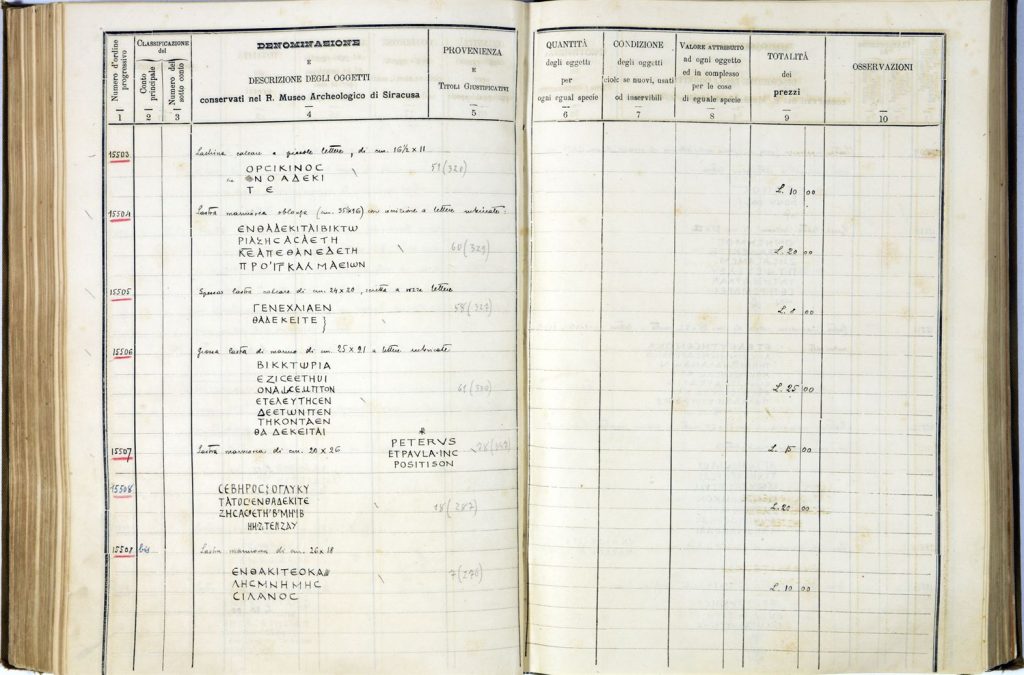 Numero d'ordine progressivo
CLASSIFICAZIONE del
Conto principale
Numero del sotto conto
DENOMINAZIONE
E
DESCRIZIONE DEGLI OGGETTI
conservati nel R. Museo Archeologico di Siracusa
PROVENIENZA
E
TITOLI GIUSTIFICATIVI
1 2 3 4 5
15503 calcare a piccole lettere, di cm. 16 1/2 x 11
ΟΡСΙΚΙΝΟС
ΝΟΑΔΕΚΙ
Τ Ε
15504 Lastra marmorea oblunga (cm. 35x16) con iscrizione a lettere rubricate:
ΕΝΘΑΔΕΚΙΤΑΙΒΙΚΤѠ
ΡΙΑΖΗСΑСΑΕΤΗ
ΚΕΑΠΕΘΑΝΕΔΕΤΗ
15505 lastra calcare di cm. 24 x 20, a rozze lettere
ΓΕΝΕΧΛΙΑΕΝ
ΘΑΔΕΚΕΙΤΕ
15506 Grossa lastra di marmo di cm. 25 x 21 a lettere rubricate
ΒΙΚΚΤѠΡΙΑ
ΕΖΙСΕΕΤΗUΙ
ΕΤΕΛΕΥΤΗСΕΝ
ΔΕΕΤѠΝΠΕΝ
ΤΗΚΟΝΤΑΕΝ
ΘΑΔΕΚΕΙΤΑΙ
15507 Lastra marmorea di cm. 20 x 26
PETERVS
ETPAVLA·INC
POSITISON
15508
СΕΒΗΡΟС:ΟΓΛΥΚΥ
ΤΑΤΟС'ΕΝΘΑΔΕΚΙΤΕ
15508 bis Lastra marmorea di cm. 26 x 18
ΕΝΘΑΚΙΤΕΟΚΑ
ΛΗСΜΝΗΜΗС
СΙΛΑΝΟС
51(320)
60(329)
58(327)
61(330)
18(287)
7(276)
QUANTITÀ
degli oggetti
per
ogni egual specie
CONDIZIONE
degli oggetti
cioè se nuovi, usati
od inservibili
VALORE ATTRIBUITO
ad ogni oggetto
ed in complesso
per le cose
di eguale specie
TOTALITÀ
dei
prezzi
OSSERVAZIONI
6 7 8 9 10
L. 10 00
L. 20 00
L. 8 00
L. 25 00
L. 15 00
L. 20 00
L. 10 00